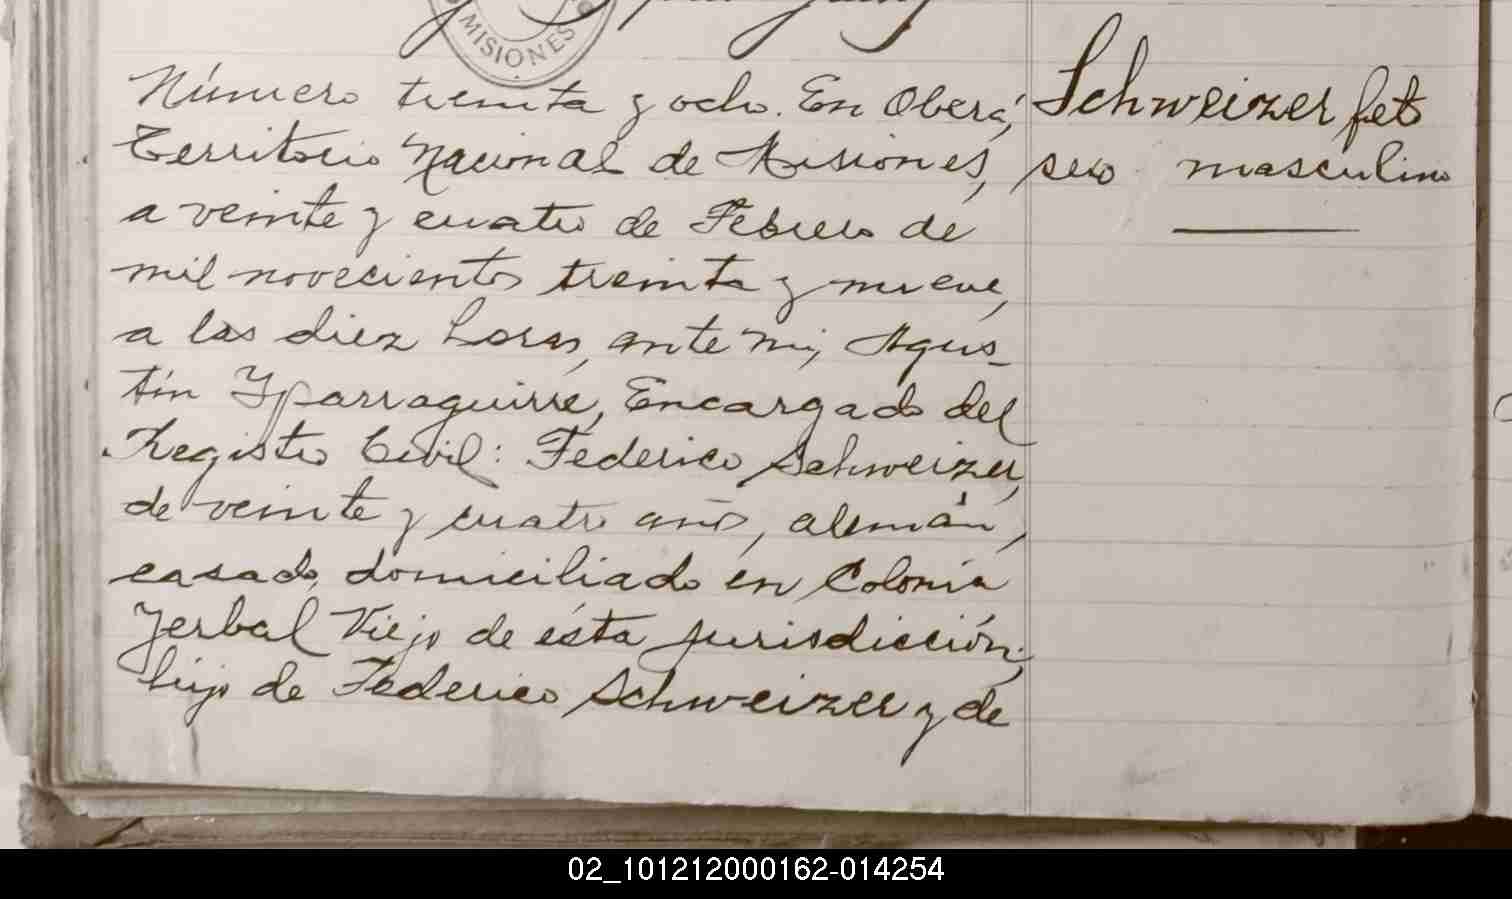 MISIONES
Número treinta y ocho. En Oberá,
Territorio Nacional de Misiones,
a veinte y cuatro de Febrero de
mil novecientos treinta y nueve,
a las diez horas, ante mi, Agus-
tín Yparraguirre, Encargado del
Registro Civil: Federico Schweizer,
de veinte y cuatro años, alemán,
casado, domiciliado en Colonia
Yerbal Viejo de ésta jurisdicción,
hijo de Federico Schweizer y de
Schweizer feto
sexo masculino
02_101212000162-014254